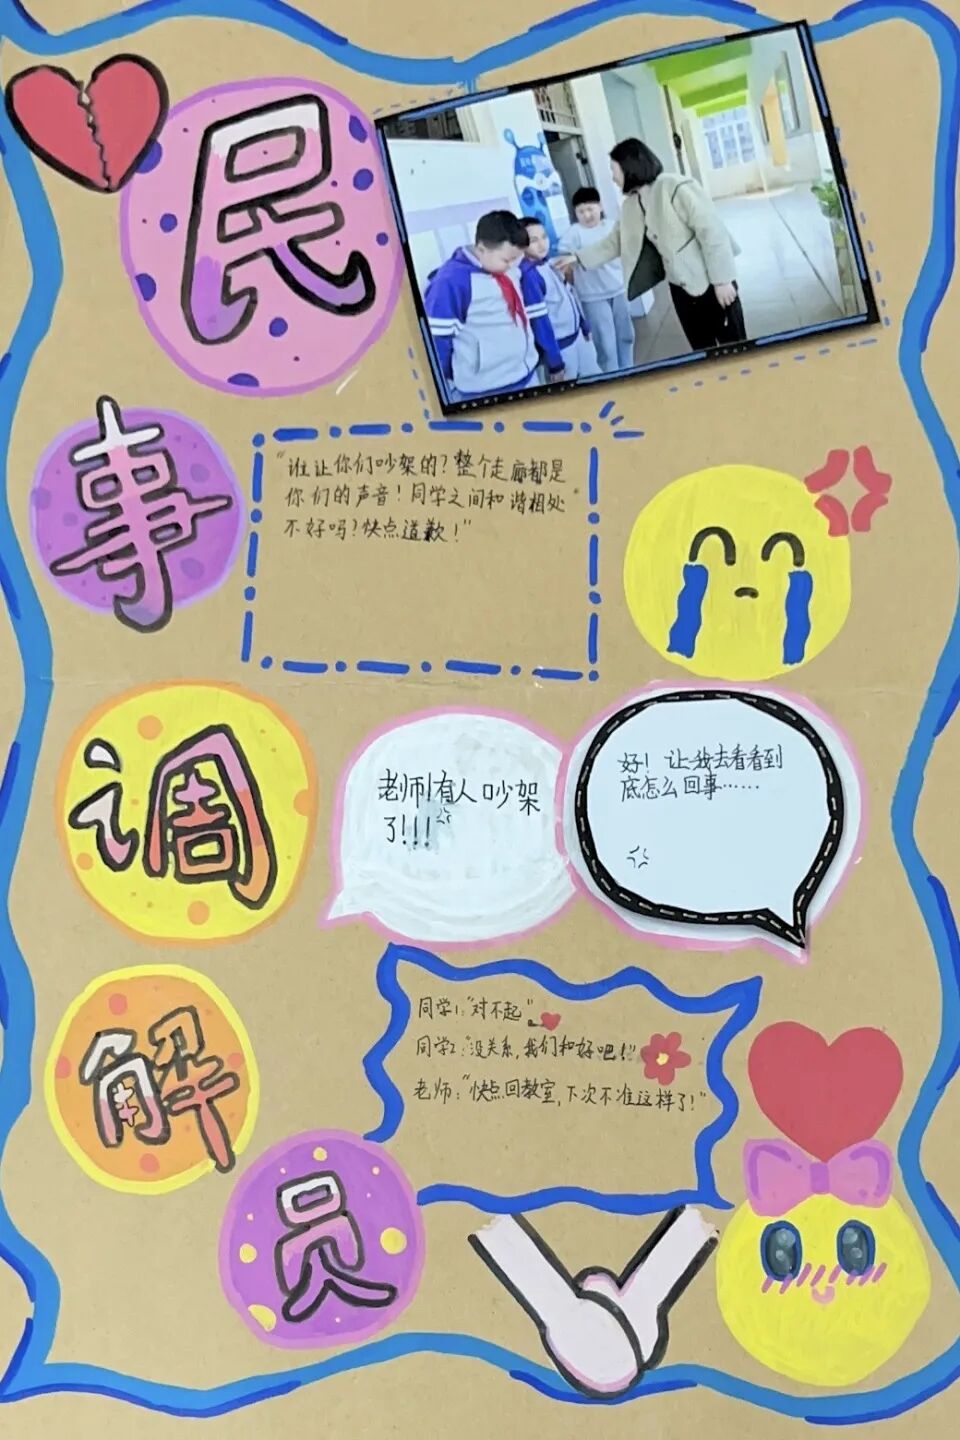 民
事
调
解
员
“谁让你们吵架的?整个走廊都是
你们的声音!同学之间和谐相处
不好吗?快点道歉!”
老师!有人吵架
了!!!
好!让我去看看到
底怎么回事……
同学1:“对不起”
同学2:“没关系,我们和好吧!”
老师:“快点回教室,下次不准这样了!”